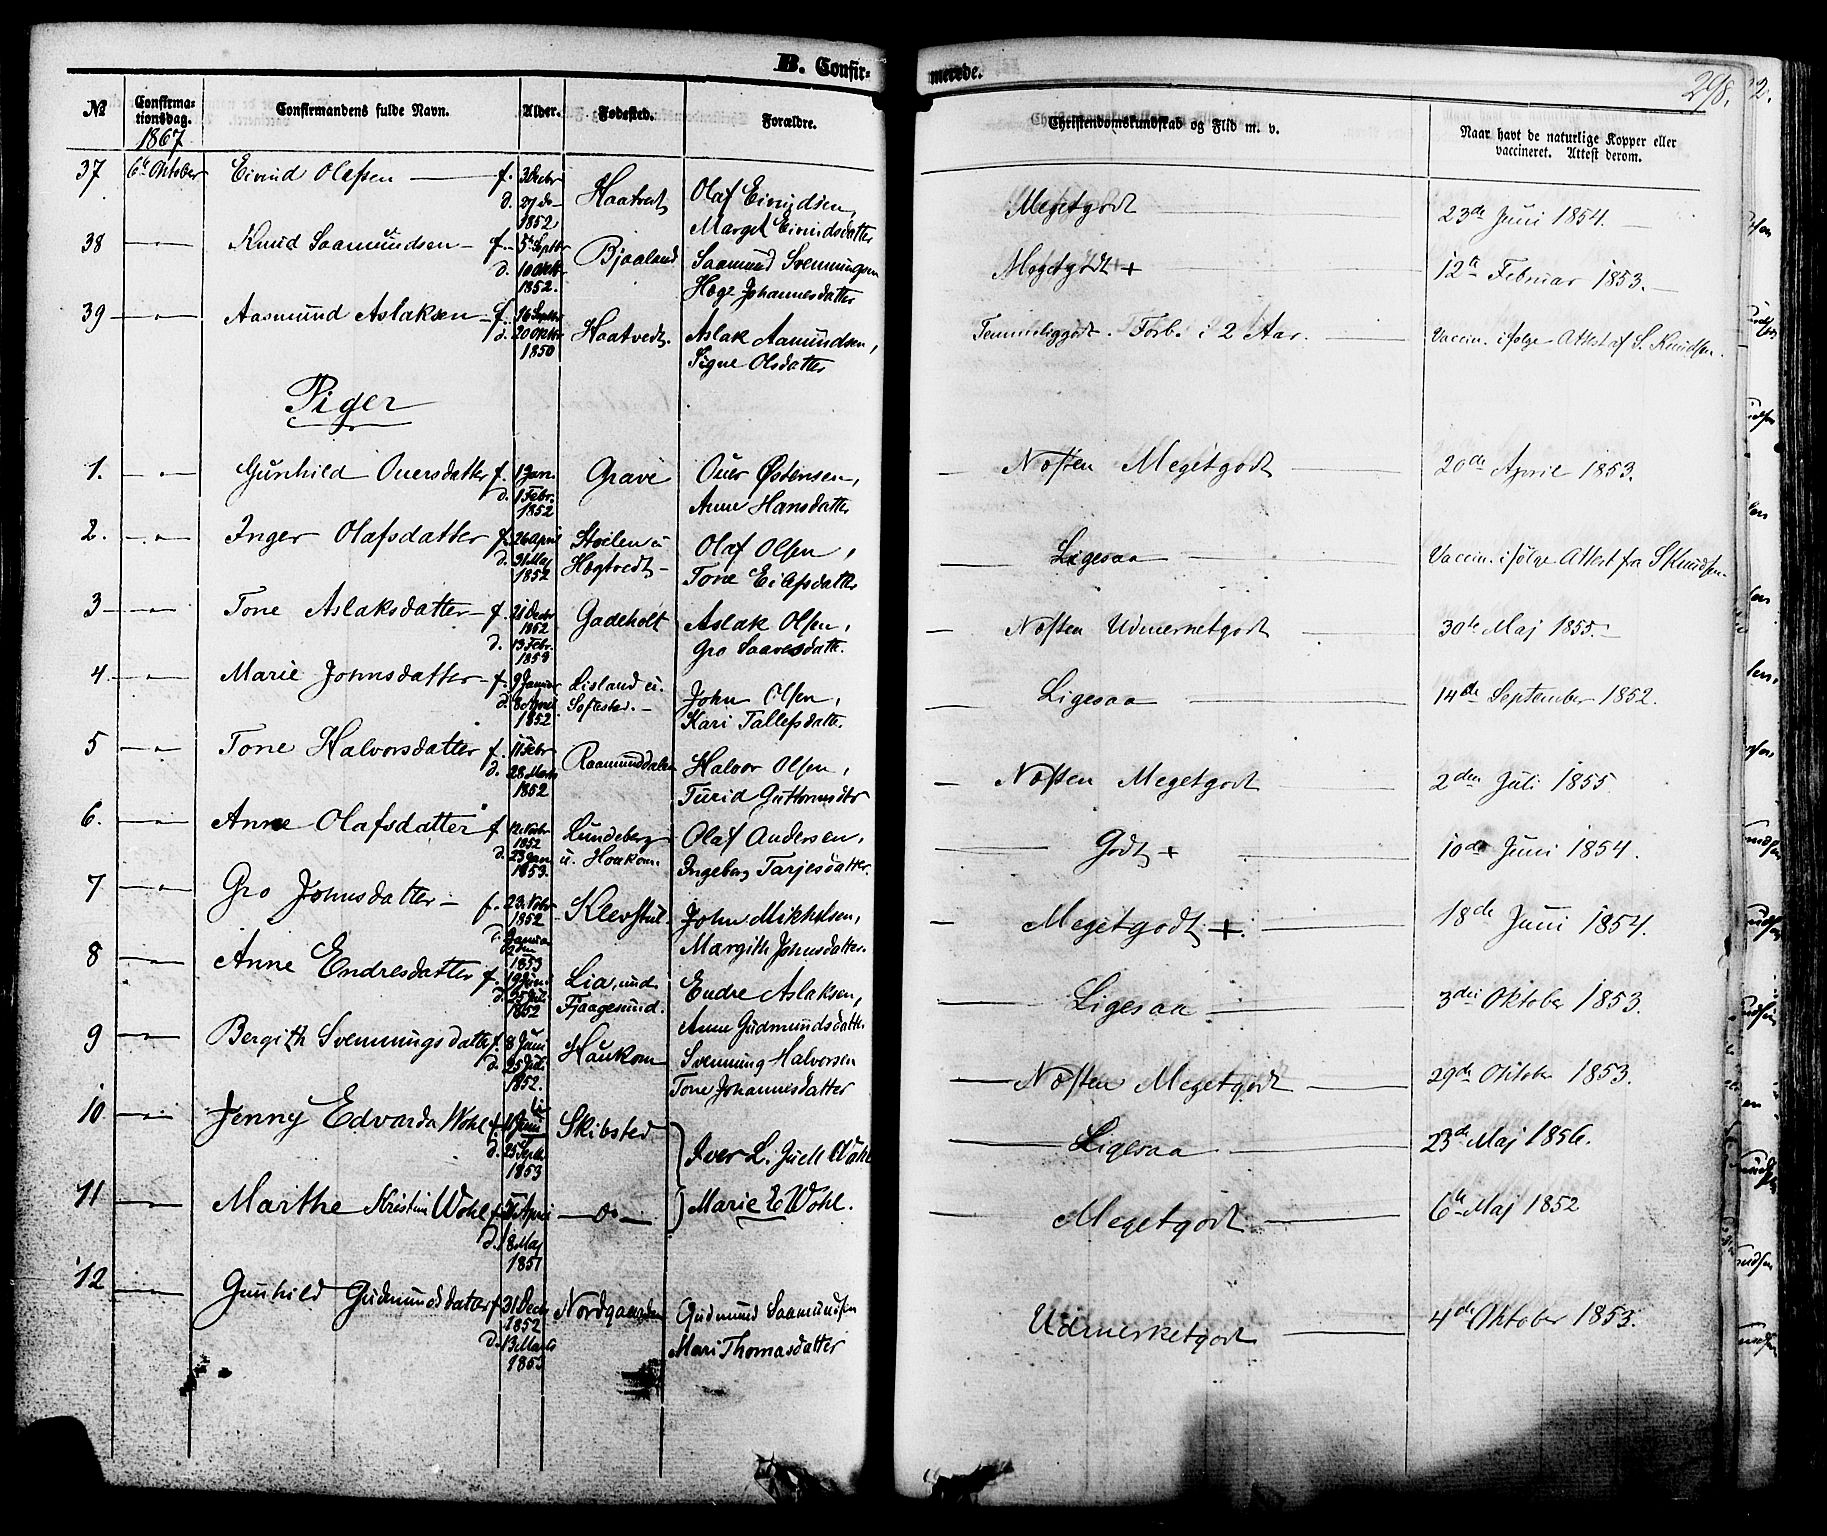 B. Confir-
merede.
298.
№
Confirma-
tionsdag.
1867
Confirmandens fulde Navn.
Alder.
Fødested.
Forældre.
Christendomskundskab og Flid m. v.
Naar havt de naturlige Kopper eller
vaccineret. Attest derom.
37 6te Oktober Eivind Olafsen f. 3 Decbr d. 27 do 1852 Haatvedt Olaf Eivindsen, Meget godt 23de Juni 1854.
Marget Eivindsdatter
38 Knud Saamundsen f. 5te Septbr d. 10 Oktbr 1852. Bjaaland Saamund Svenningsen Meget godt + 12te Februar 1853.
Hæge Johannesdatter
39 Aasmund Aslaksen f. 16 Septbr d. 20 Oktbr 1850 Haatvedt. Aslak Aamundsen, Temmelig godt. Forb. i 2 Aar. Vaccin. ifølge Attest af S. Knudsen.
Signe Olsdatter
Piger
1. Gunhild Ouersdatter f. 1 Jan. d. 1 Febr. 1852 Grave Ouer Østensen, Næsten Meget godt 20de April 1853.
Anne Hansdatter
2. Inger Olafsdatter f. 26 April d. 31 Maj 1852 Støilen u Høgtvedt Olaf Olsen, Ligesaa Vaccin. ifølge Attest fra S Knudsen.
Tone Eilefsdatter
3 Tone Aslaksdatter f. 21 Decbr 1852 d. 13 Febr. 1853 Gadeholt Aslak Olsen, Næsten Udmerketgodt 30te Maj 1855.
Gro Saavesdatt.
4. Marie Johnsdatter f. 9 Januar d. 8 April 1852 Lisland u. Sofiested. John Olsen, Ligesaa 14de September 1852.
Kari Tallefsdatt.
5 Tone Halvorsdatter f. 11 Febr d. 28 Marts 1852 Raamunddalen Halvor Olsen, Næsten Meget godt 2den Juli 1855
Turid Guttormsdtr
6. Anne Olafsdatter f. 12 Novbr 1852 d. 23 Jan 1853. Lundeberg u. Haukom. Olaf Andersen, Godt + 10de Juni 1854.
Ingeborg Tarjesdatter.
7 Gro Johnsdatter f. 23 Novbr 1852 d. Januar 1853 Klevstul John Mikkelsen, Meget godt +. 18de Juni 1854.
Margith Johnsdatter.
8 Anne Endresdatter f. 19 Juni d. 25 Juli 1852 Lia, und Fjaagesund. Endre Aslaksen, Ligesaa 3die Oktober 1853.
Anne Gudmundsdatt.
9 Bergith Svennungsdatter f. 8 Juni d. 25 Juli 1852. Haukom Svennung Halvorsen Næsten Meget godt 29de Oktober 1853.
Tone Johannesdatter
10. Jenny Edvarda Wohl f. Juni d. 25 Septbr 1853 Skibsted Iver L. Juell Wohl Ligesaa 23de Maj 1856.
11 Marthe Kristine Wohl f. April d. 18 Maj 1851 do Marie E Wohl. Meget godt 6te Maj 1852
12 Gunhild Gudmundsdatter f. 31 Decbr 1852 d. 13 Marts 1853 Nordgaarden Gudmund Saamundsen Udmerketgodt 4de Oktober 1853.
Mari Thomasdatter